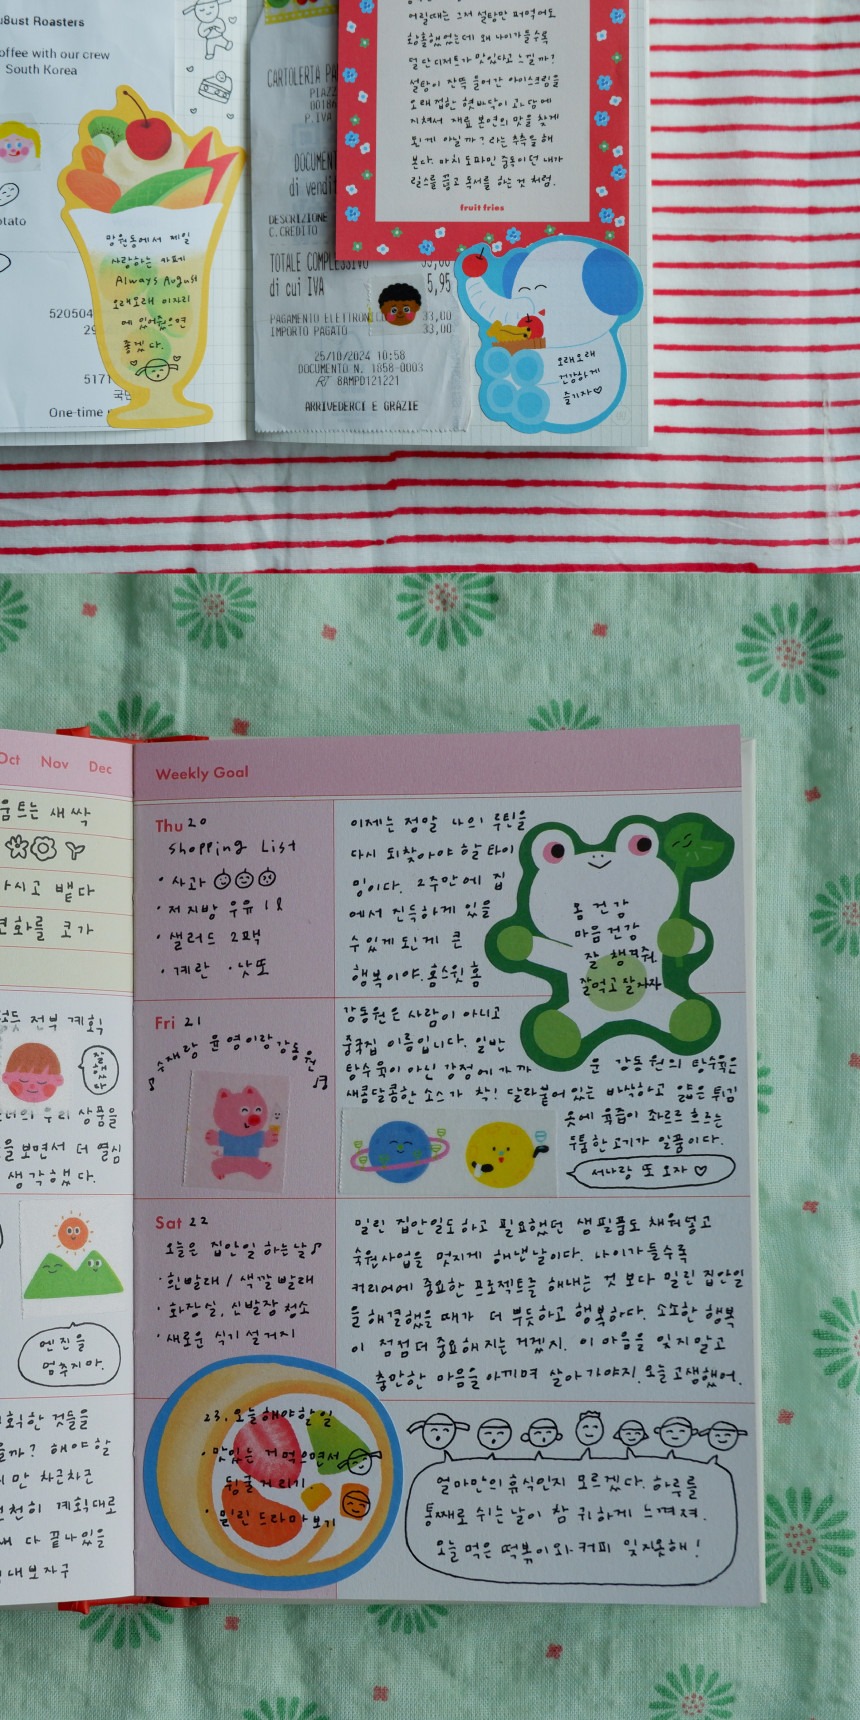 8ust Roasters
offee with our crew
South Korea
otato
520504
29
5171
국민
One-time
망원동에서 제일
사랑하는 카페
Always August
오래오래 이자리
에 있어줬으면
좋겠다.
CARTOLERIA PA
PIAZZ
00186
P.IVA
DOCUMENT
di vendi
DESCRIZIONE
C.CREDITO
TOTALE COMPLESSIVO 33,00
di cui IVA 5,95
PAGAMENTO ELETTRONICO 33,00
IMPORTO PAGATO 33,00
25/10/2024 10:58
DOCUMENTO N. 1858-0003
RT 8AMPD121221
ARRIVEDERCI E GRAZIE
어릴때는 그저 설탕만 퍼먹어도
황홀했었는데 왜 나이가들수록
덜 단 디저트가 맛있다고 느낄까?
설탕이 잔뜩 들어간 아이스크림을
오래 접한 혓바닥이 고단함에
지쳐서 재료 본연의 맛을 찾게
된 게 아닐까? 라는 추측을 해
본다. 마치 도파민 중독이던 내가
릴스를 끊고 독서를 하는 것 처럼.
fruit fries
오래오래
건강하게
즐기자♡
Oct Nov Dec
움트는 새싹
마시고 뱉다
변화를 코가
전부 계획
잘했다
우리 상품을
을보면서 더 열심
생각했다.
엔진을
멈추지마.
계획한 것들을
을까? 해야 할
지만 차근차근
천천히 계획대로
새 다 끝나있을
내보자구
Weekly Goal
Thu 20
shopping List
· 사과
· 저지방 우유 1ℓ
· 샐러드 2팩
· 계란 · 낫또
이제는 정말 나의 루틴을
다시 되찾아야 할 타이
밍이다. 2주만에 집
에서 진득하게 있을
수 있게 된게 큰
행복이야. 홈스윗홈
몸 건강
마음 건강
잘 챙겨줘.
잘먹고 잘자자
Fri 21
수재랑 윤영이랑 강동원
강동원은 사람이 아니고
중국집 이름입니다. 일반
탕수육이 아닌 강정에 가까
운 강동원의 탕수육은
새콤달콤한 소스가 착! 달라붙어 있는 바삭하고 얇은 튀김
옷에 육즙이 좌르르 흐르는
두툼한 고기가 일품이다.
서나랑 또 오자 ♡
Sat 22
오늘은 집안일 하는 날♪
· 흰빨래 / 색깔 빨래
· 화장실, 신발장 청소
· 새로운 식기 설거지
밀린 집안일도하고 필요했던 생필품도 채워넣고
숙원사업을 멋지게 해낸날이다. 나이가들수록
커리어에 중요한 프로젝트를 해내는 것 보다 밀린 집안일
을 해결했을 때가 더 뿌듯하고 행복하다. 소소한 행복
이 점점더 중요해지는 거겠지. 이 마음을 잊지말고
충만한 마음을 아끼며 살아가야지. 오늘 고생했어.
23. 오늘해야할일
· 맛있는 거 먹으면서
뒹굴거리기
· 밀린 드라마보기
얼마만의 휴식인지 모르겠다. 하루를
통째로 쉬는 날이 참 귀하게 느껴져.
오늘 먹은 떡볶이와 커피 잊지못해!